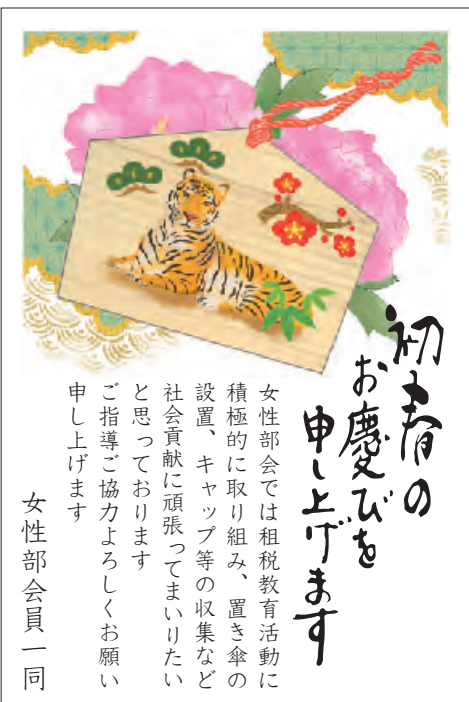 初春の
お慶びを
申し上げます
女性部会では租税教育活動に
積極的に取り組み、置き傘の
設置、キャップ等の収集など
社会貢献に頑張ってまいりたい
と思っております
ご指導ご協力よろしくお願い
申し上げます
女性部会員一同